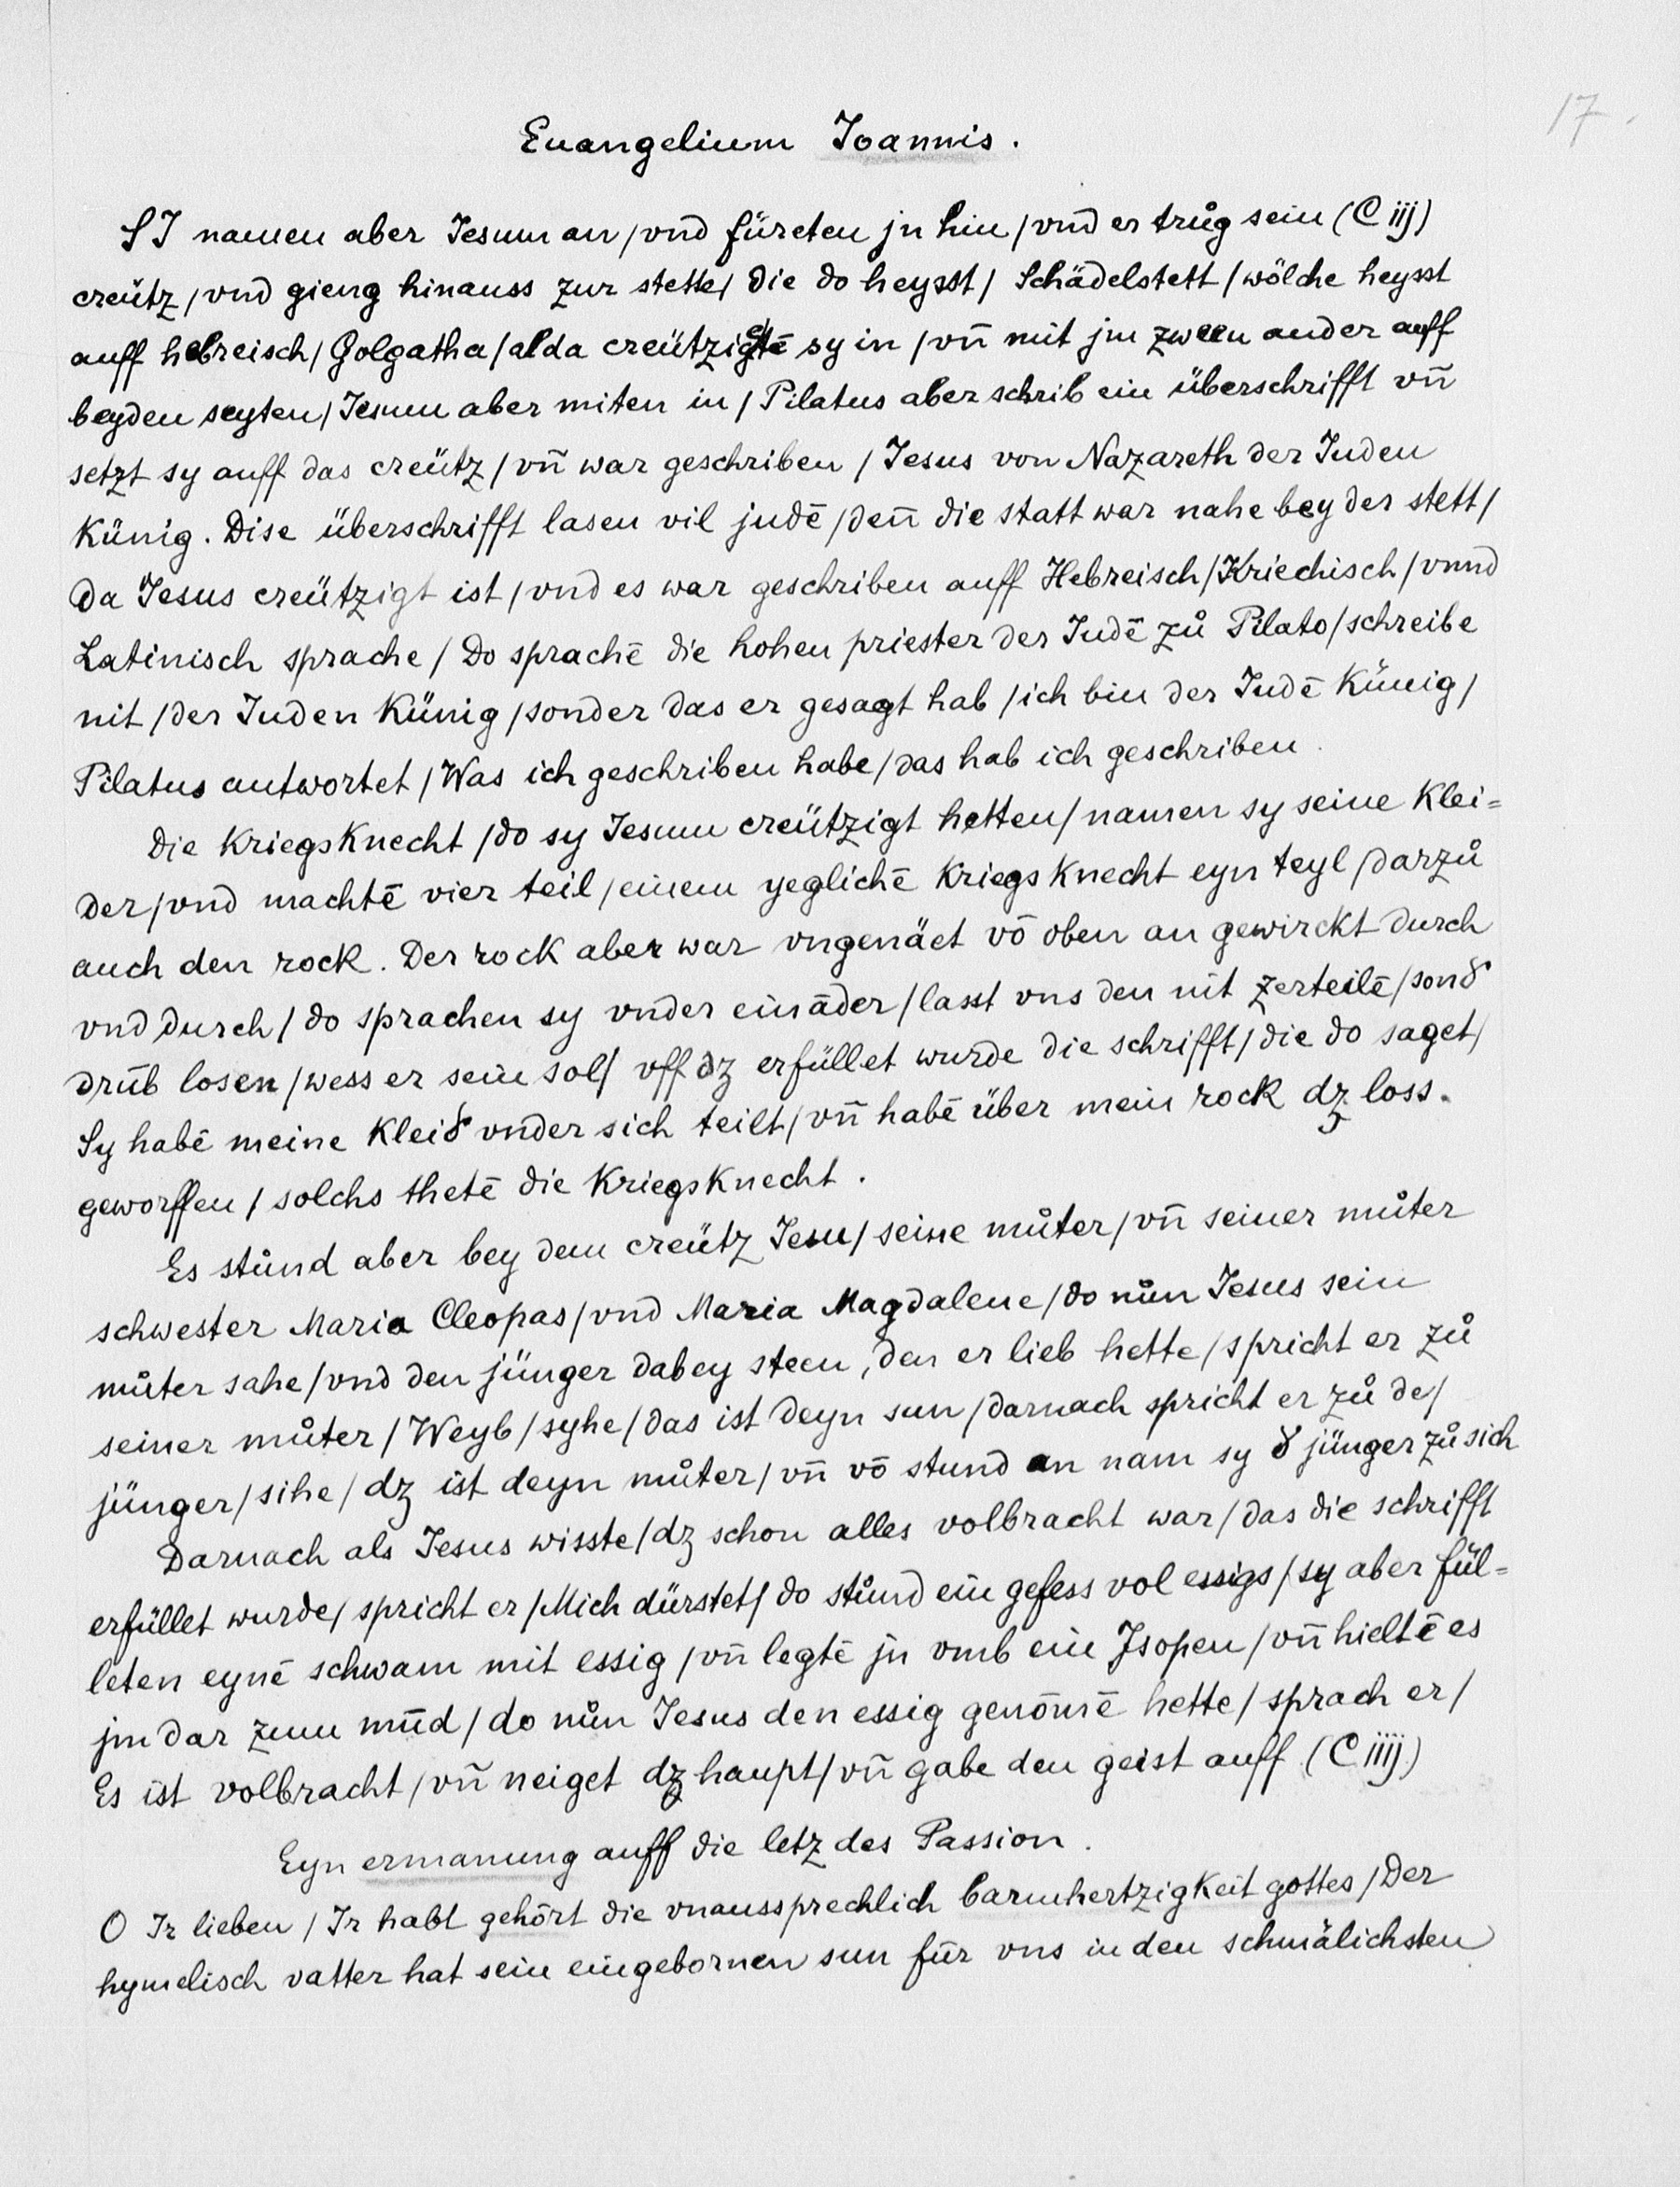 17.
Euangelium Joannis.
SJ namen aber Jesum an / vnd fürten jn hin / vnd er trůg sein (C iij)
creütz / vnd gieng hinauss zur stette / die do heysst / Schädelstett / wölche heysst
auff hebreisch / Golgatha / alda creützigtē sy in / vn̄ mit jm zween ander auff
beyden seyten / Jesum aber miten in / Pilatus aber schrib ein überschrifft vn̄
setzt sy auff das creütz / vn̄ war geschriben / Jesus von Nazareth der Juden
Künig. Dise überschrifft lasen vil judē / den̄ die statt war nahe bey der stett /
da Jesus creützigt ist / vnd es war geschriben auff Hebreisch / Kriechisch / vnnd
Latinisch sprache / Do sprachē die hohen priester der Judē zů Pilato / schreibe
nit / der Juden Künig / sonder das er gesagt hab / ich bin der Judē Künig /
Pilatus antwortet / Was ich geschriben habe / das hab ich geschriben.
Die Kriegsknecht / do sy Jesum creützigt hetten / namen sy seine Klei=
der / vnd machtē vier teil / einem yeglichē Kriegsknecht eyn teyl / darzů
auch den rock. Der rock aber war vngenäet vō oben an gewirckt durch
vnd durch / do sprachen sy vnder eināder / lasst vns den nit zerteilē / sonδ
drūb losen / wess er sein sol / vff dz erfüllet wurde die schrifft / die do saget /
Sy habē meine Kleiδ vnder sich teilt / vn̄ habē über mein rock dz loss.
geworffen / solchs thetē die Kriegsknecht.
Es stůnd aber bey dem creütz Jesu / seine můter / vn̄ seiner můter
schwester Maria Cleopas / vnd Maria Magdalene / do nůn Jesus sein
můter sahe / vnd den jünger dabey steen, den er lieb hette / spricht er zů
seiner můter / Weyb / syhe / das ist deyn sun / darnach spricht er zů de /
jünger / sihe / dz ist deyn můter / vn̄ vō stund an nam sy δ jünger zů sich
Darnach als Jesus wisste / dz schon alles volbracht war / das die schrifft
erfüllet wurde / spricht er / Mich dürstet / do stůnd ein gefess vol essigs / sy aber fül=
leten eynē schwam mit essig / vn̄ legtē jn vmb ein Jsopen / vn̄ hieltē es
jm dar zum mūd / do nůn Jesus den essig genōmē hette / sprach er /
Es ist volbracht / vn̄ neiget dz haupt / vn̄ gabe den geist auff (C iiij)
Eyn ermanung auff die letz des Passion.
O Jr lieben / Jr habt gehört die vnaussprechlich barmhertzigkeit gottes / Der
hymelisch vatter hat sein eingebornen sun für vns in den schmälichsten